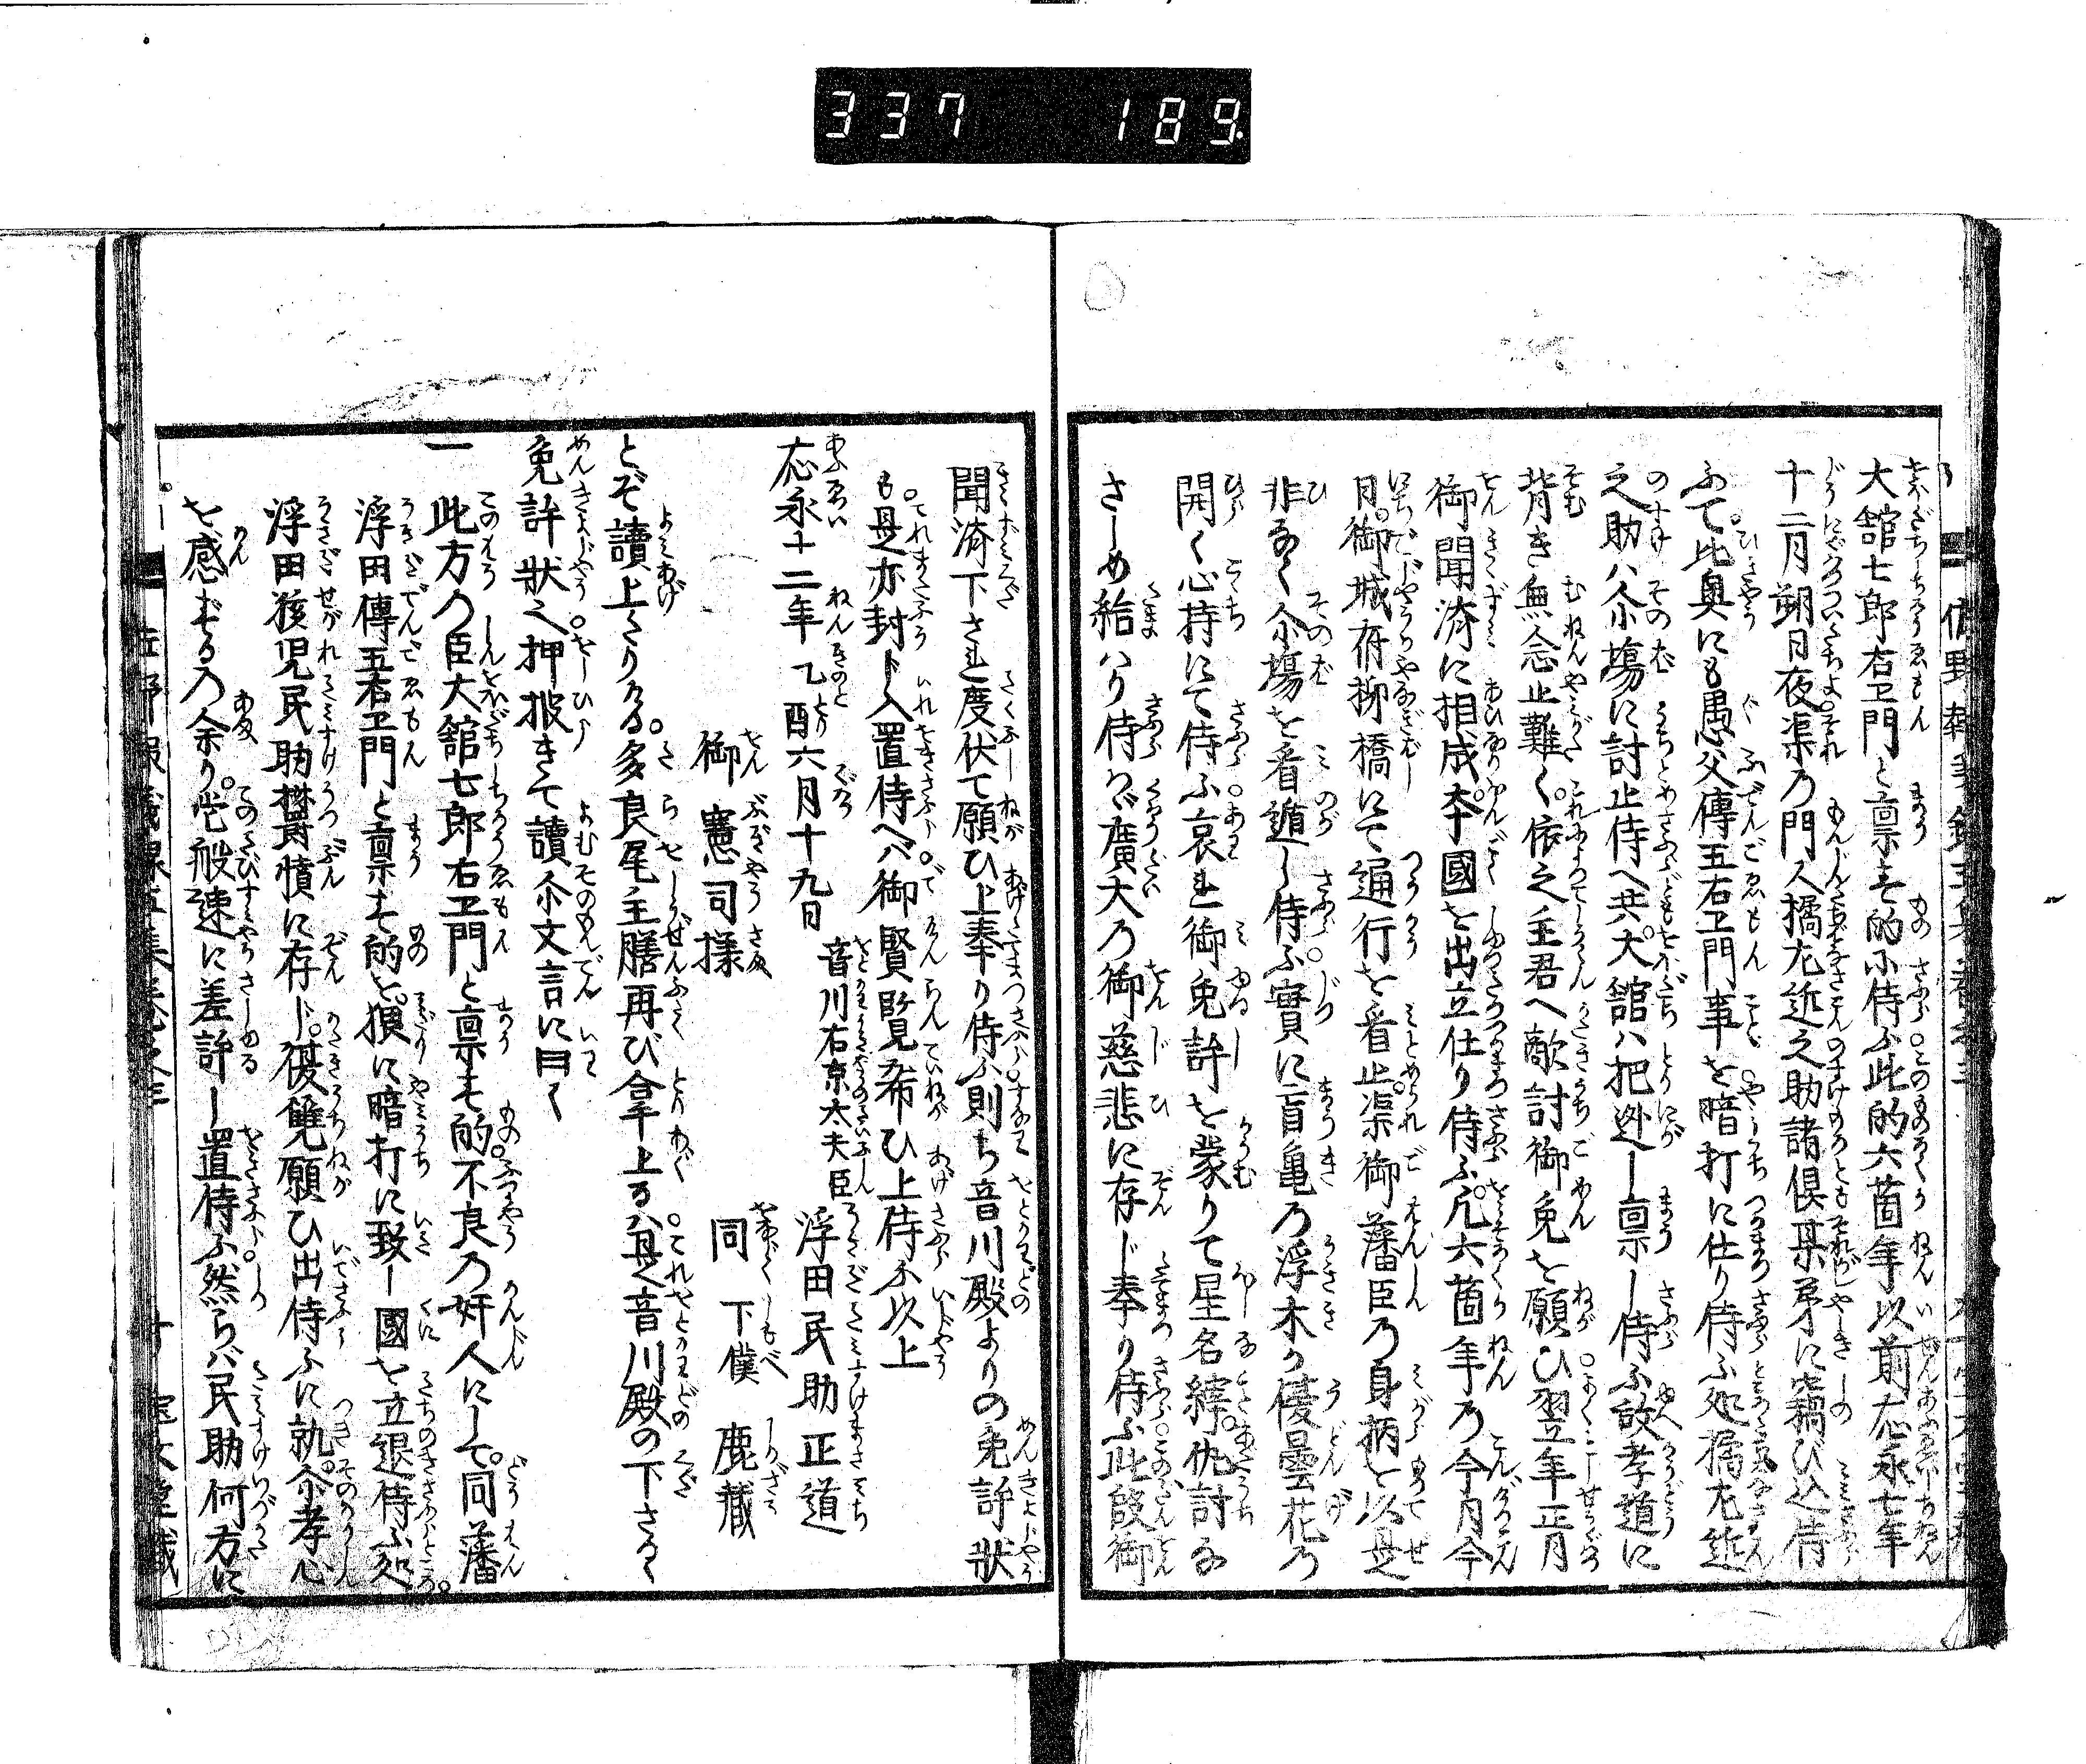 337 189
大舘七郎右エ門と禀す的に侍ふ此的六箇年以前応永七年
十二月朔日夜渠乃門人橘尤近之助諸倶某弟に竊び込侍
ふて此奥にも愚父傳五右エ門事を暗打に仕り侍ふ処橘尤近
之助ハ尒塲に討止侍へ共大舘ハ把迯し禀し侍ふ故孝道に
背き無念止難く依之主君へ敵討御免を願ひ翌年正月
御聞済に相成本國を出立仕り侍ふ凢六箇年乃今月今
日御城府柳橋にて通行を看止渠御藩臣乃身柄を以是
非なく尒塲を看遁し侍ふ實に盲亀乃浮木か優曇花乃
開く心持にて侍ふ哀れ御免許を蒙りて星名繂仇討な
さしめ給ハり侍ハゞ廣大乃御慈悲に存じ奉り侍ふ此段御
聞済下され度伏て願ひ上奉り侍ふ則ち音川殿よりの免許状
も是亦封ド入置侍へバ御賢覧希ひ上侍ふ以上
応永十二年乙酉六月十九日
音川右京太夫臣
浮田民助正道
同下僕 鹿蔵
御憲司様
とぞ讀上たりける多良尾主膳再び拿上るハ是音川殿の下さるゝ
免許状之押披きて讀尒文言に曰く
一 此方乃臣大舘七郎右エ門と禀す的不良乃奸人にして同藩
浮田傳五右エ門と禀す的を猥に暗打に致し國を立退侍ふ処
浮田孩児民助欝憤に存ド復讐願ひ出侍ふに就尒孝心
を感ずる乃余り这般速に差許し置侍ふ然らバ民助何方に